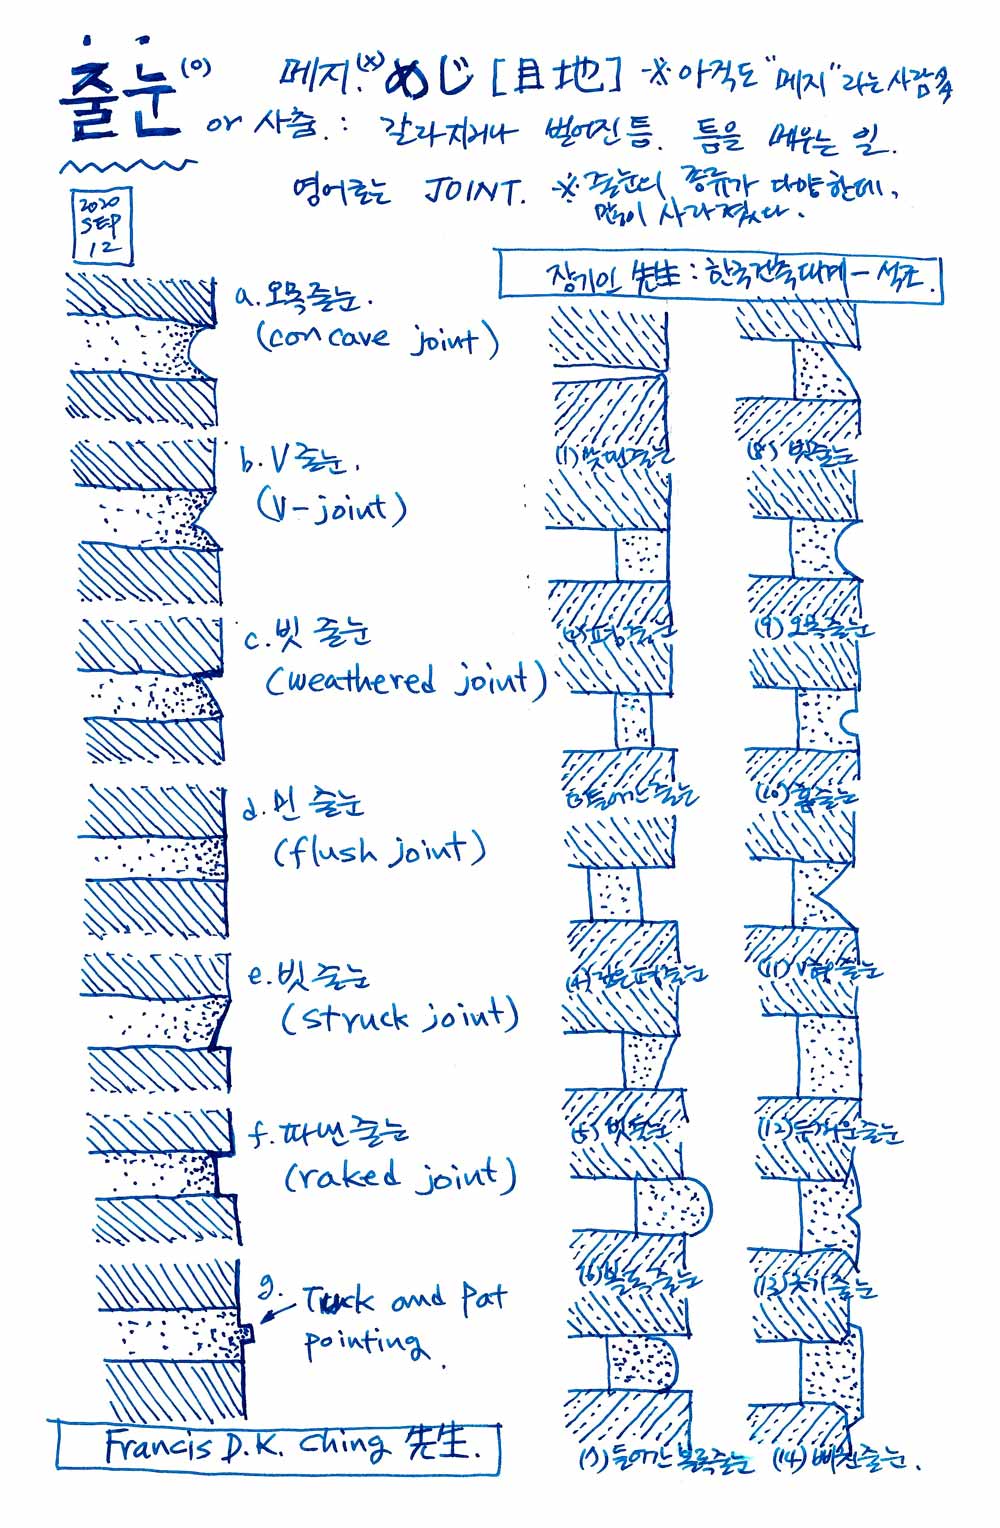 줄눈 (o) 메지.(x) めじ [目地] ※ 아직도 "메지"라는 사람多
or 사춤. : 갈라지거나 벌어진 틈. 틈을 메우는 일.
영어로는 JOINT. ※ 줄눈의 종류가 다양한데,
많이 사라졌다.
2020
SEP
12
장기인 先生 : 한국건축대계 - 석조.
a. 오목줄눈.
(concave joint)
b. V 줄눈.
(V-joint)
c. 빗 줄눈
(weathered joint)
d. 민 줄눈
(flush joint)
e. 빗줄눈
(struck joint)
f. 파낸줄눈
(raked joint)
g. Tuck and Pat
pointing.
Francis D.K. Ching 先生.
(1) 맞댄줄눈
(2) 평줄눈
(3) 들어간줄눈
(4) 깊은평줄눈
(5) 빗줄눈
(6) 볼록줄눈
(7) 들어간볼록줄눈
(8) 빗줄눈
(9) 오목줄눈
(10) 홈줄눈
(11) V형줄눈
(12) 줄눈
(13) 줄눈
(14) 줄눈.